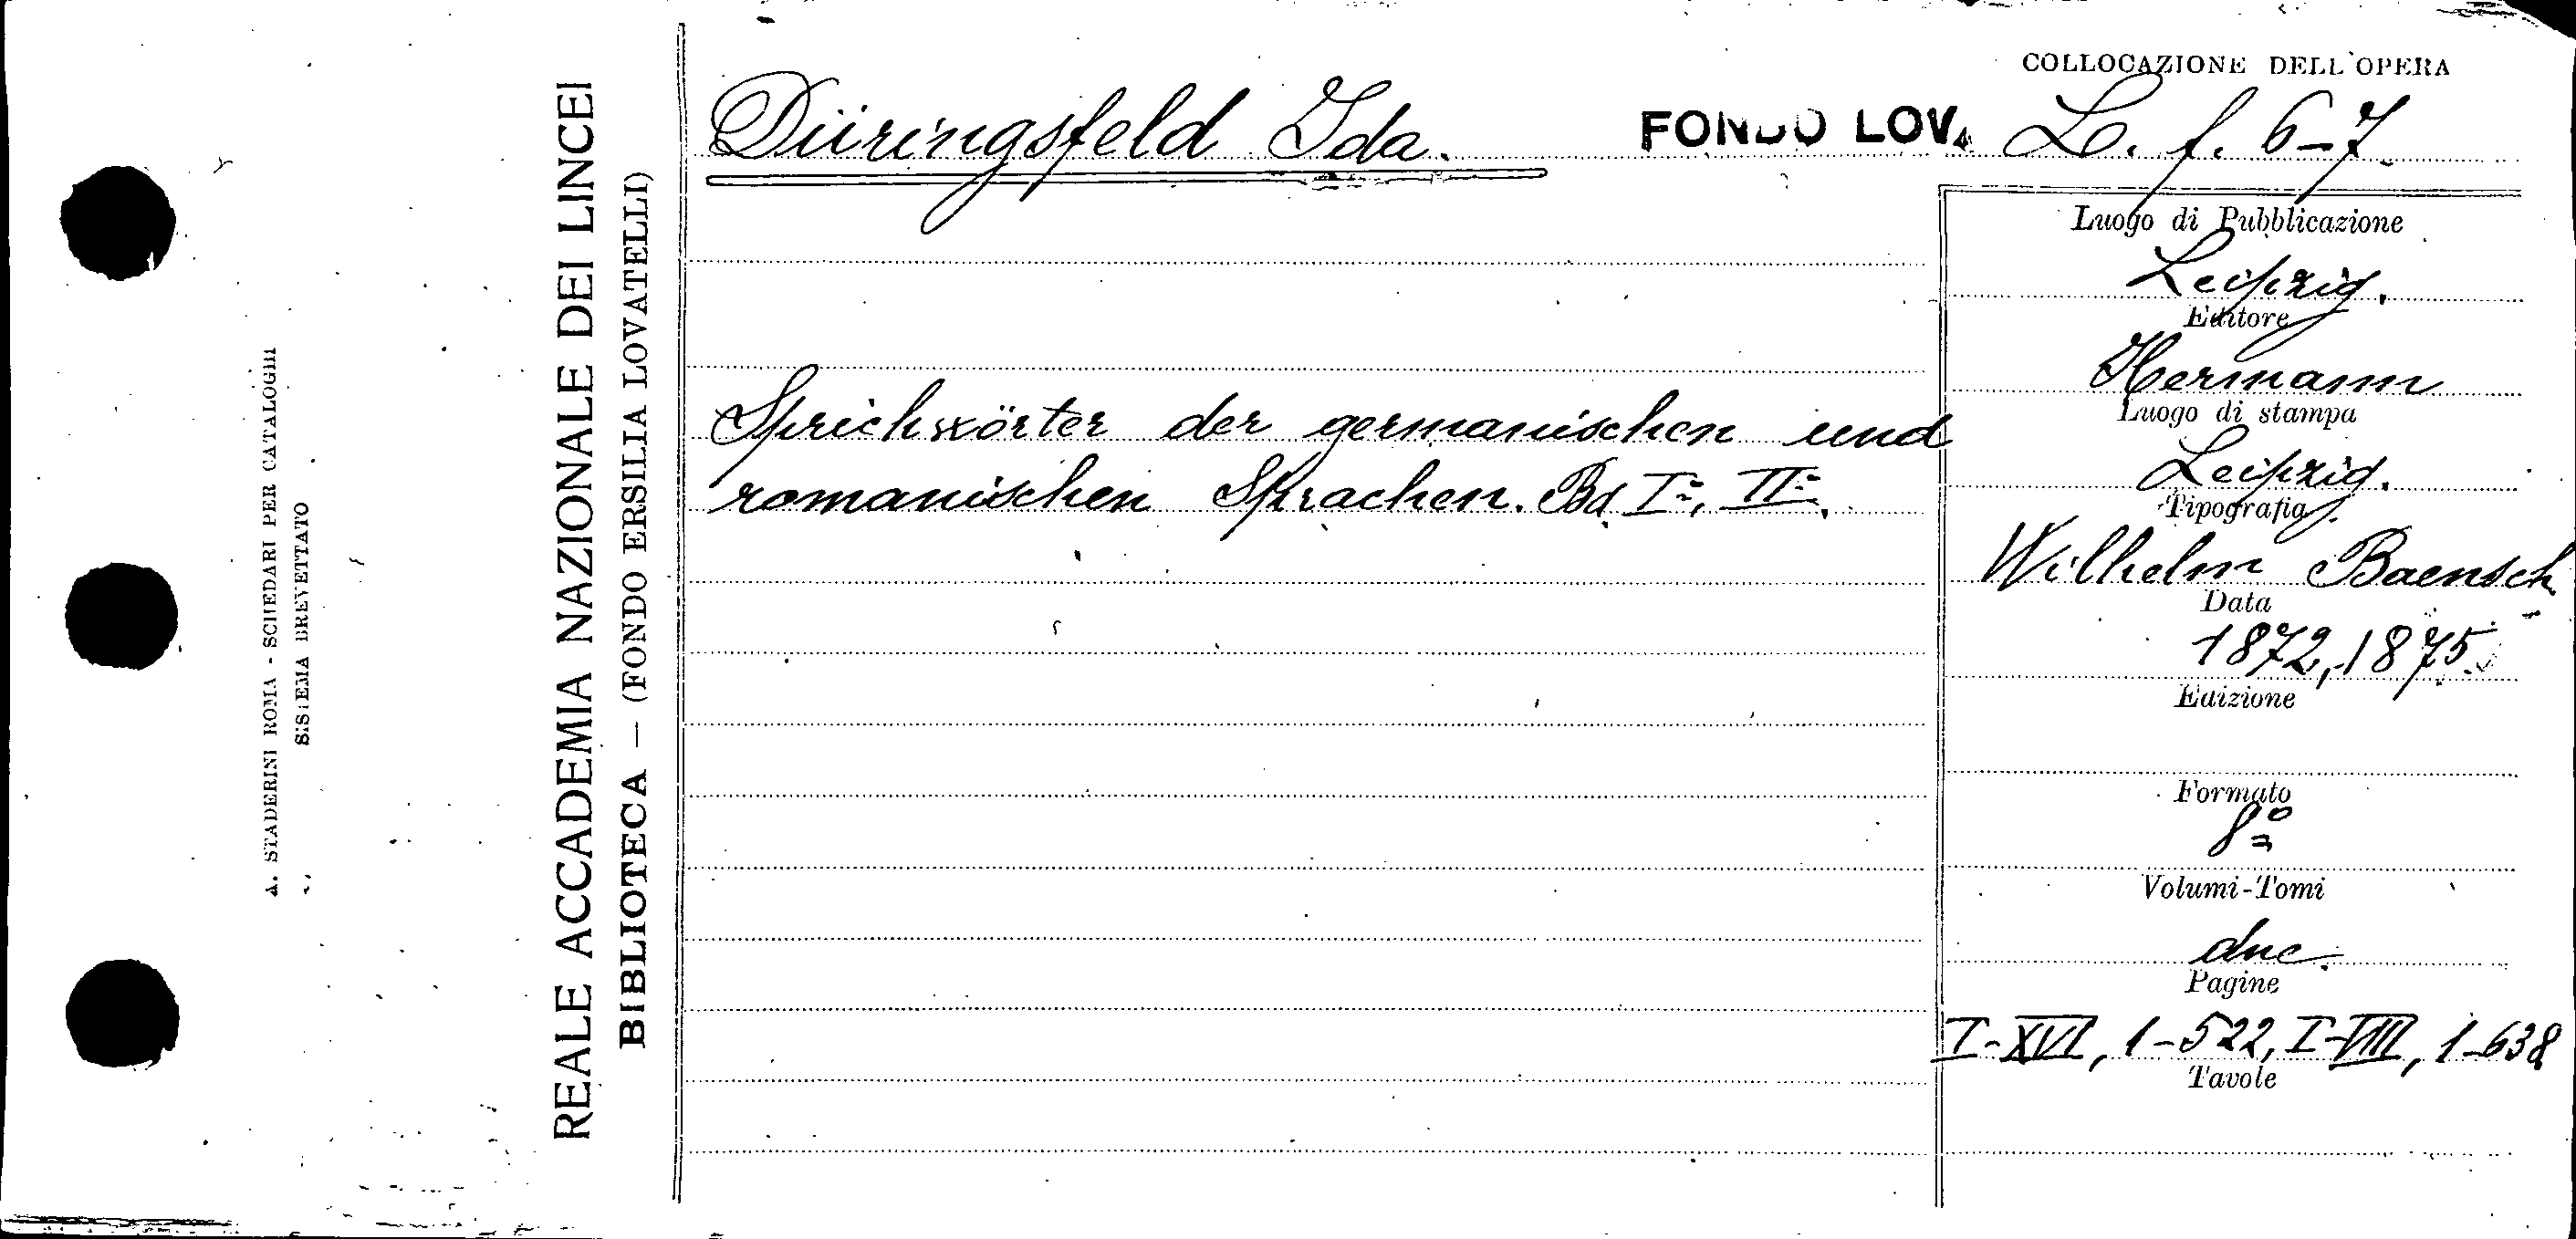 A. STADERINI ROMA - SCHEDARI PER CATALOGHI
SISTEMA BREVETTATO
REALE ACCADEMIA NAZIONALE DEI LINCEI
BIBLIOTECA — (FONDO ERSILIA LOVATELLI)
Düringsfeld Ida.
FONDO LOV.
COLLOCAZIONE DELL'OPERA
L. f. 6-7.
Sprichwörter der germanischen und
romanischen Sprachen. Bd. I=, II=.
Luogo di Pubblicazione
Leipzig.
Editore
Hermann
Luogo di stampa
Leipzig.
Tipografia
Wilhelm Baensch
Data
1872, 1875.
Edizione
Formato
8º
Volumi-Tomi
due.
Pagine
I-XVI, 1-522, I-VIII, 1-638
Tavole